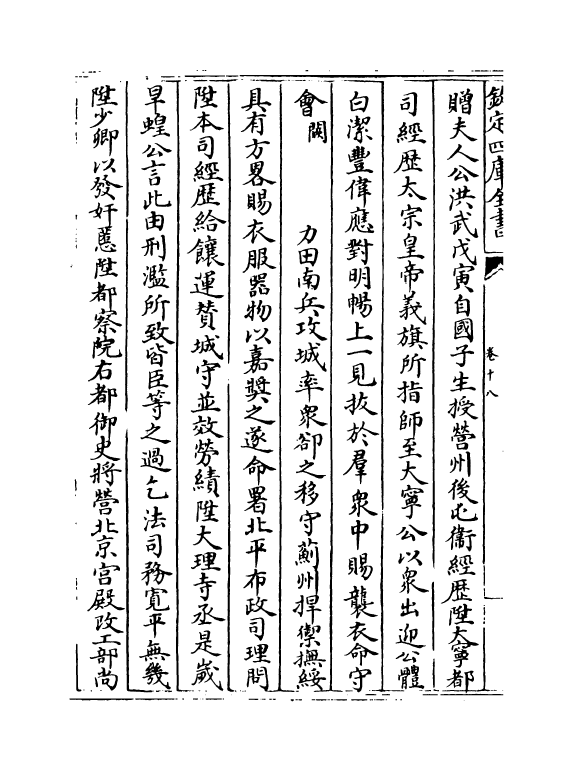 欽定四庫全書
卷十八
贈夫人公洪武戊寅自國子生授營州後屯衞經歷陞大寧都
司經歷太宗皇帝義旗所指師至大寧公以衆出迎公體
白潔豐偉應對明暢上一見拔於羣衆中賜襲衣命守
會闕力田南兵攻城率衆卻之移守薊州捍禦撫綏
具有方畧賜衣服器物以嘉奬之遂命署北平布政司理問
陞本司經歷給饟運贊城守並效勞績陞大理寺丞是歲
旱蝗公言此由刑濫所致皆臣等之過乞法司務寛平無幾
陞少卿以發奸慝陞都察院右都御史將營北京宫殿改工部尚